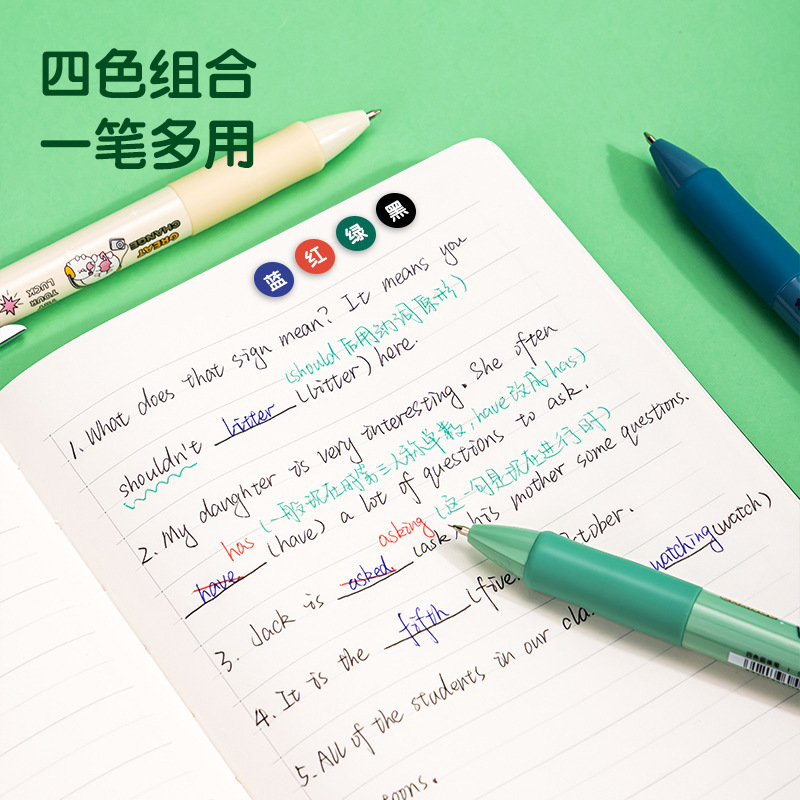 四色组合
一笔多用
GREAT
CHANGE
YOUR
LUCK
蓝 红 绿 黑
1. What does that sign mean? It means you
(should后用动词原形)
shouldn't litter (litter) here.
2. My daughter is very interesting. She often
(一般现在时第三人称单数, have改成has)
has
have (have) a lot of questions to ask.
(这一句是现在进行时)
asking
3. Jack is asked (ask) his mother some questions.
4. It is the fifth (five October.
5. All of the students in our cla watching (watch)
toons.